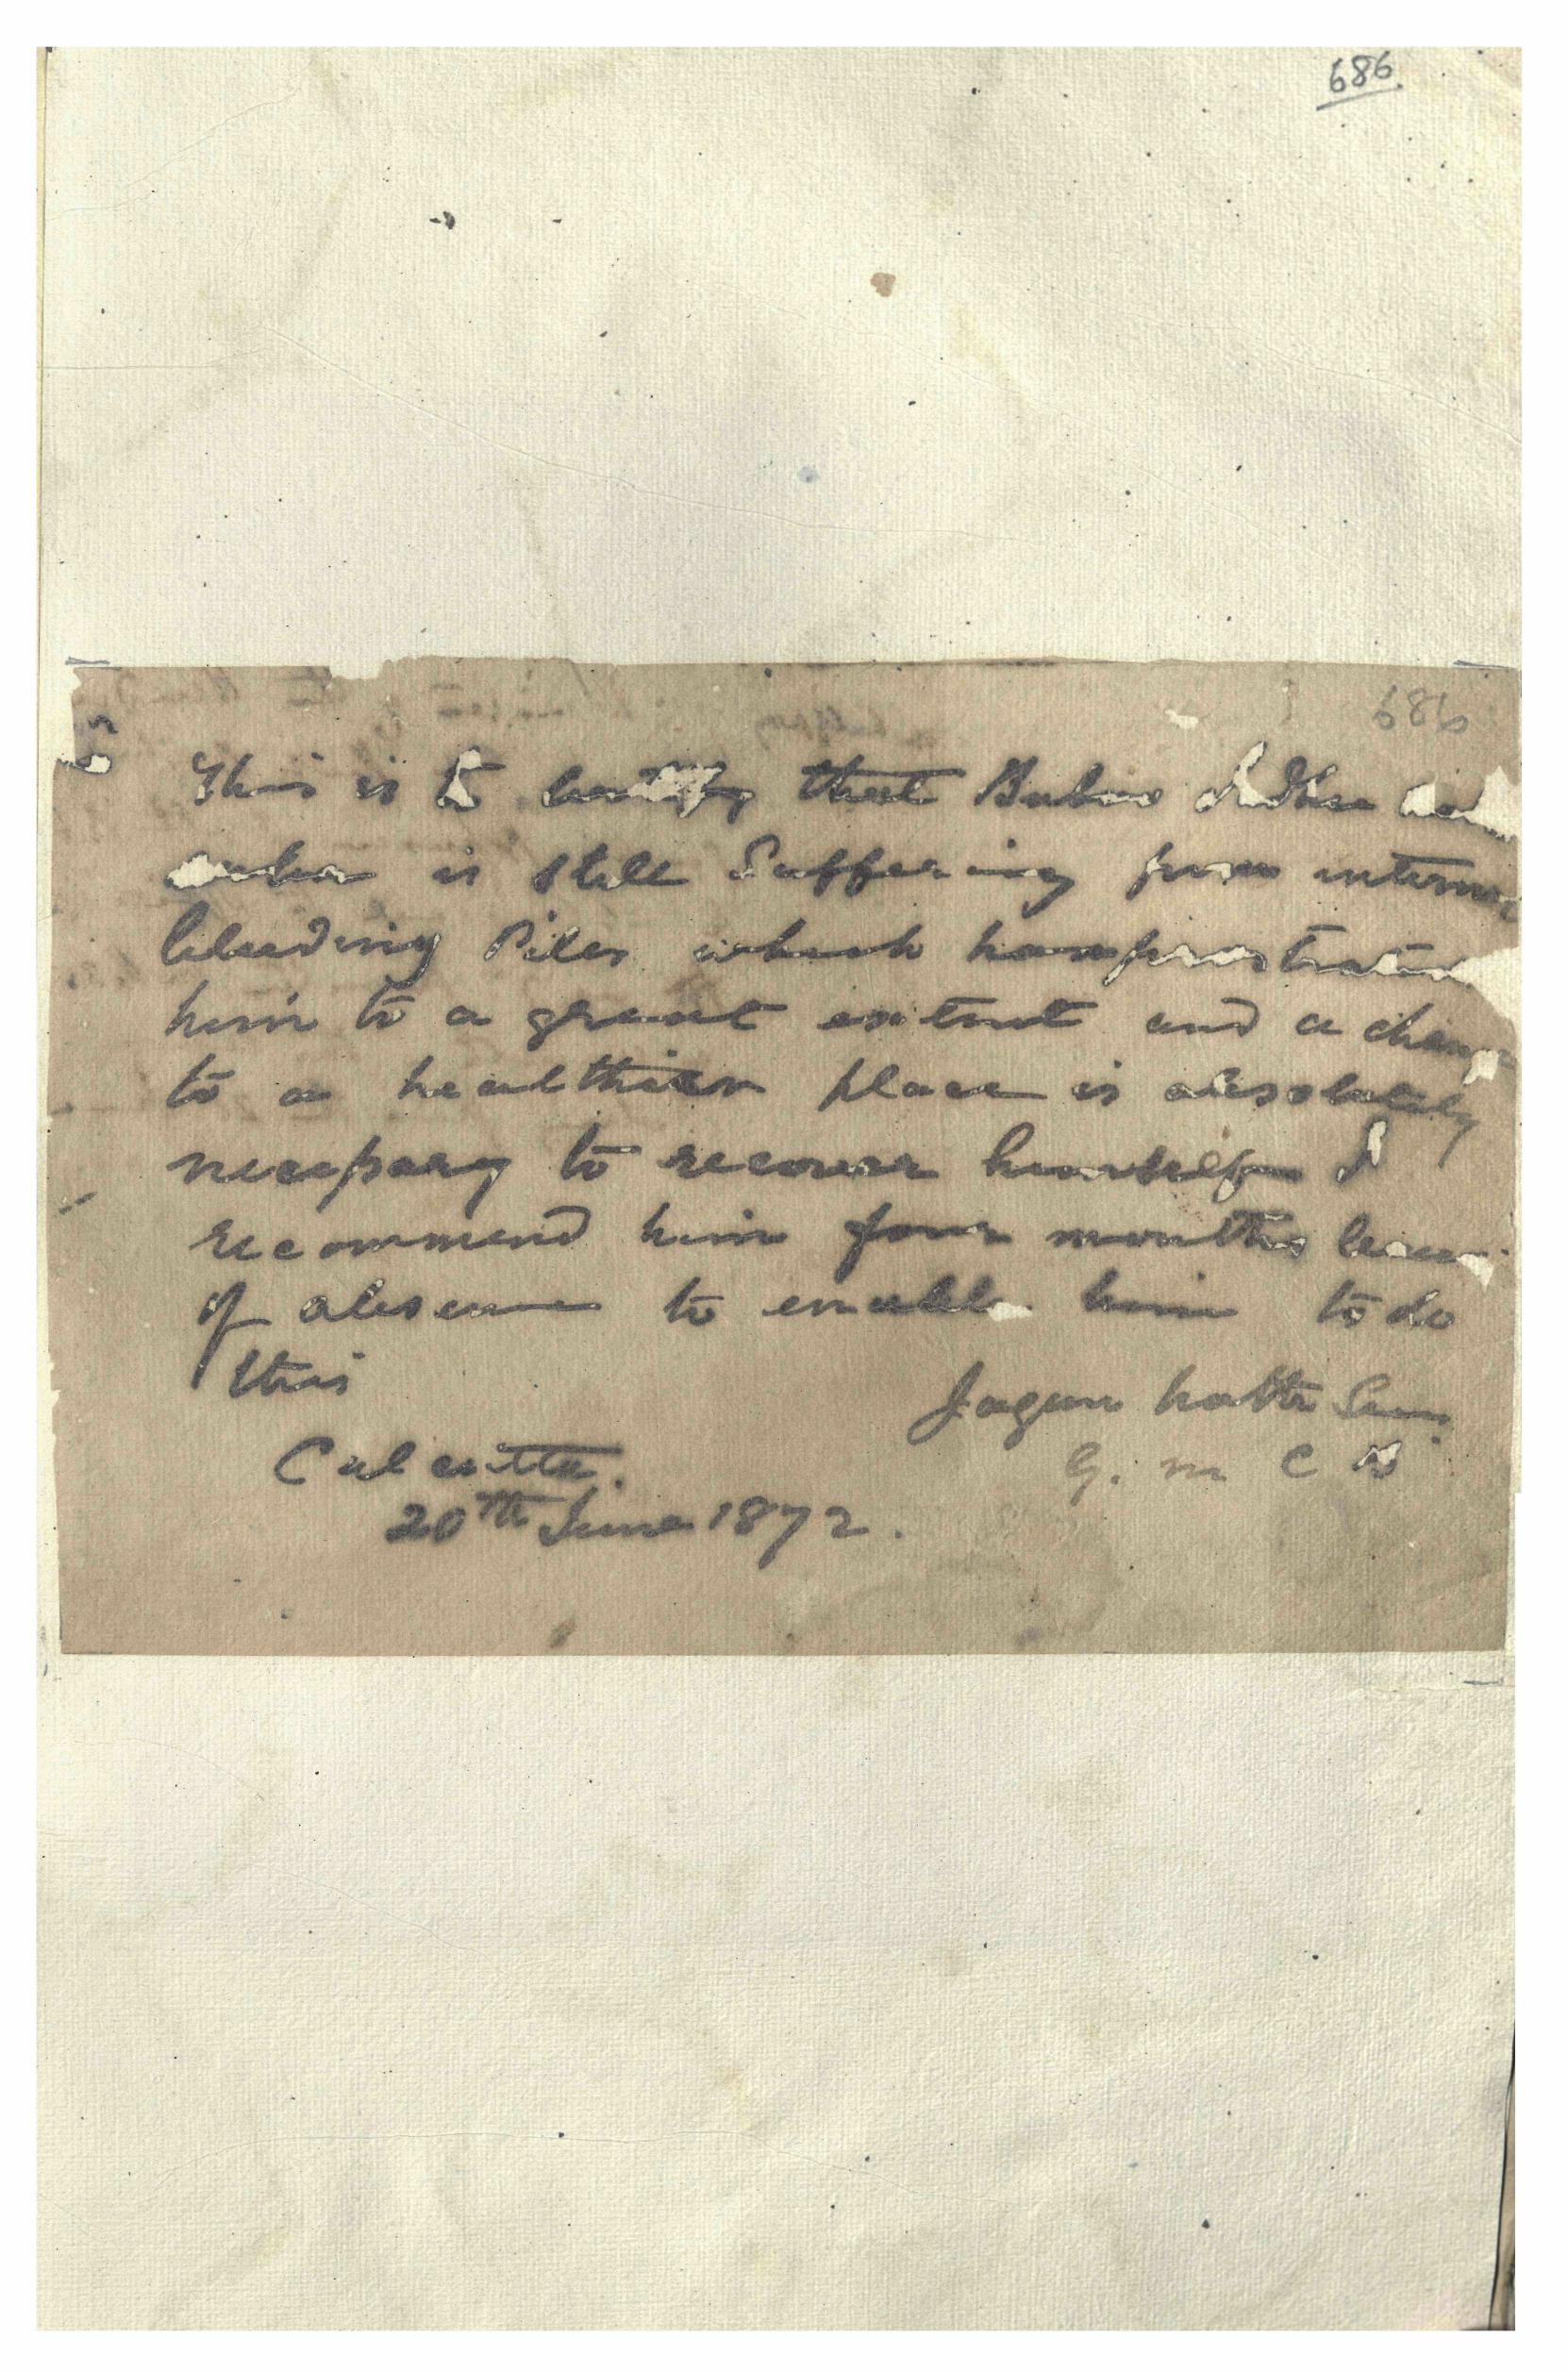 686
686
This is to certify that Baboo
is still Suffering from internal
bleeding Piles which has prostrated
him to a great extent and a change
to a healthier place is absolutely
necessary to recover himself I
recommend him four months leave
of absence to enable him to do
this
Jagun nath Sen
G. M. C B
Calcutta.
20th June 1872.